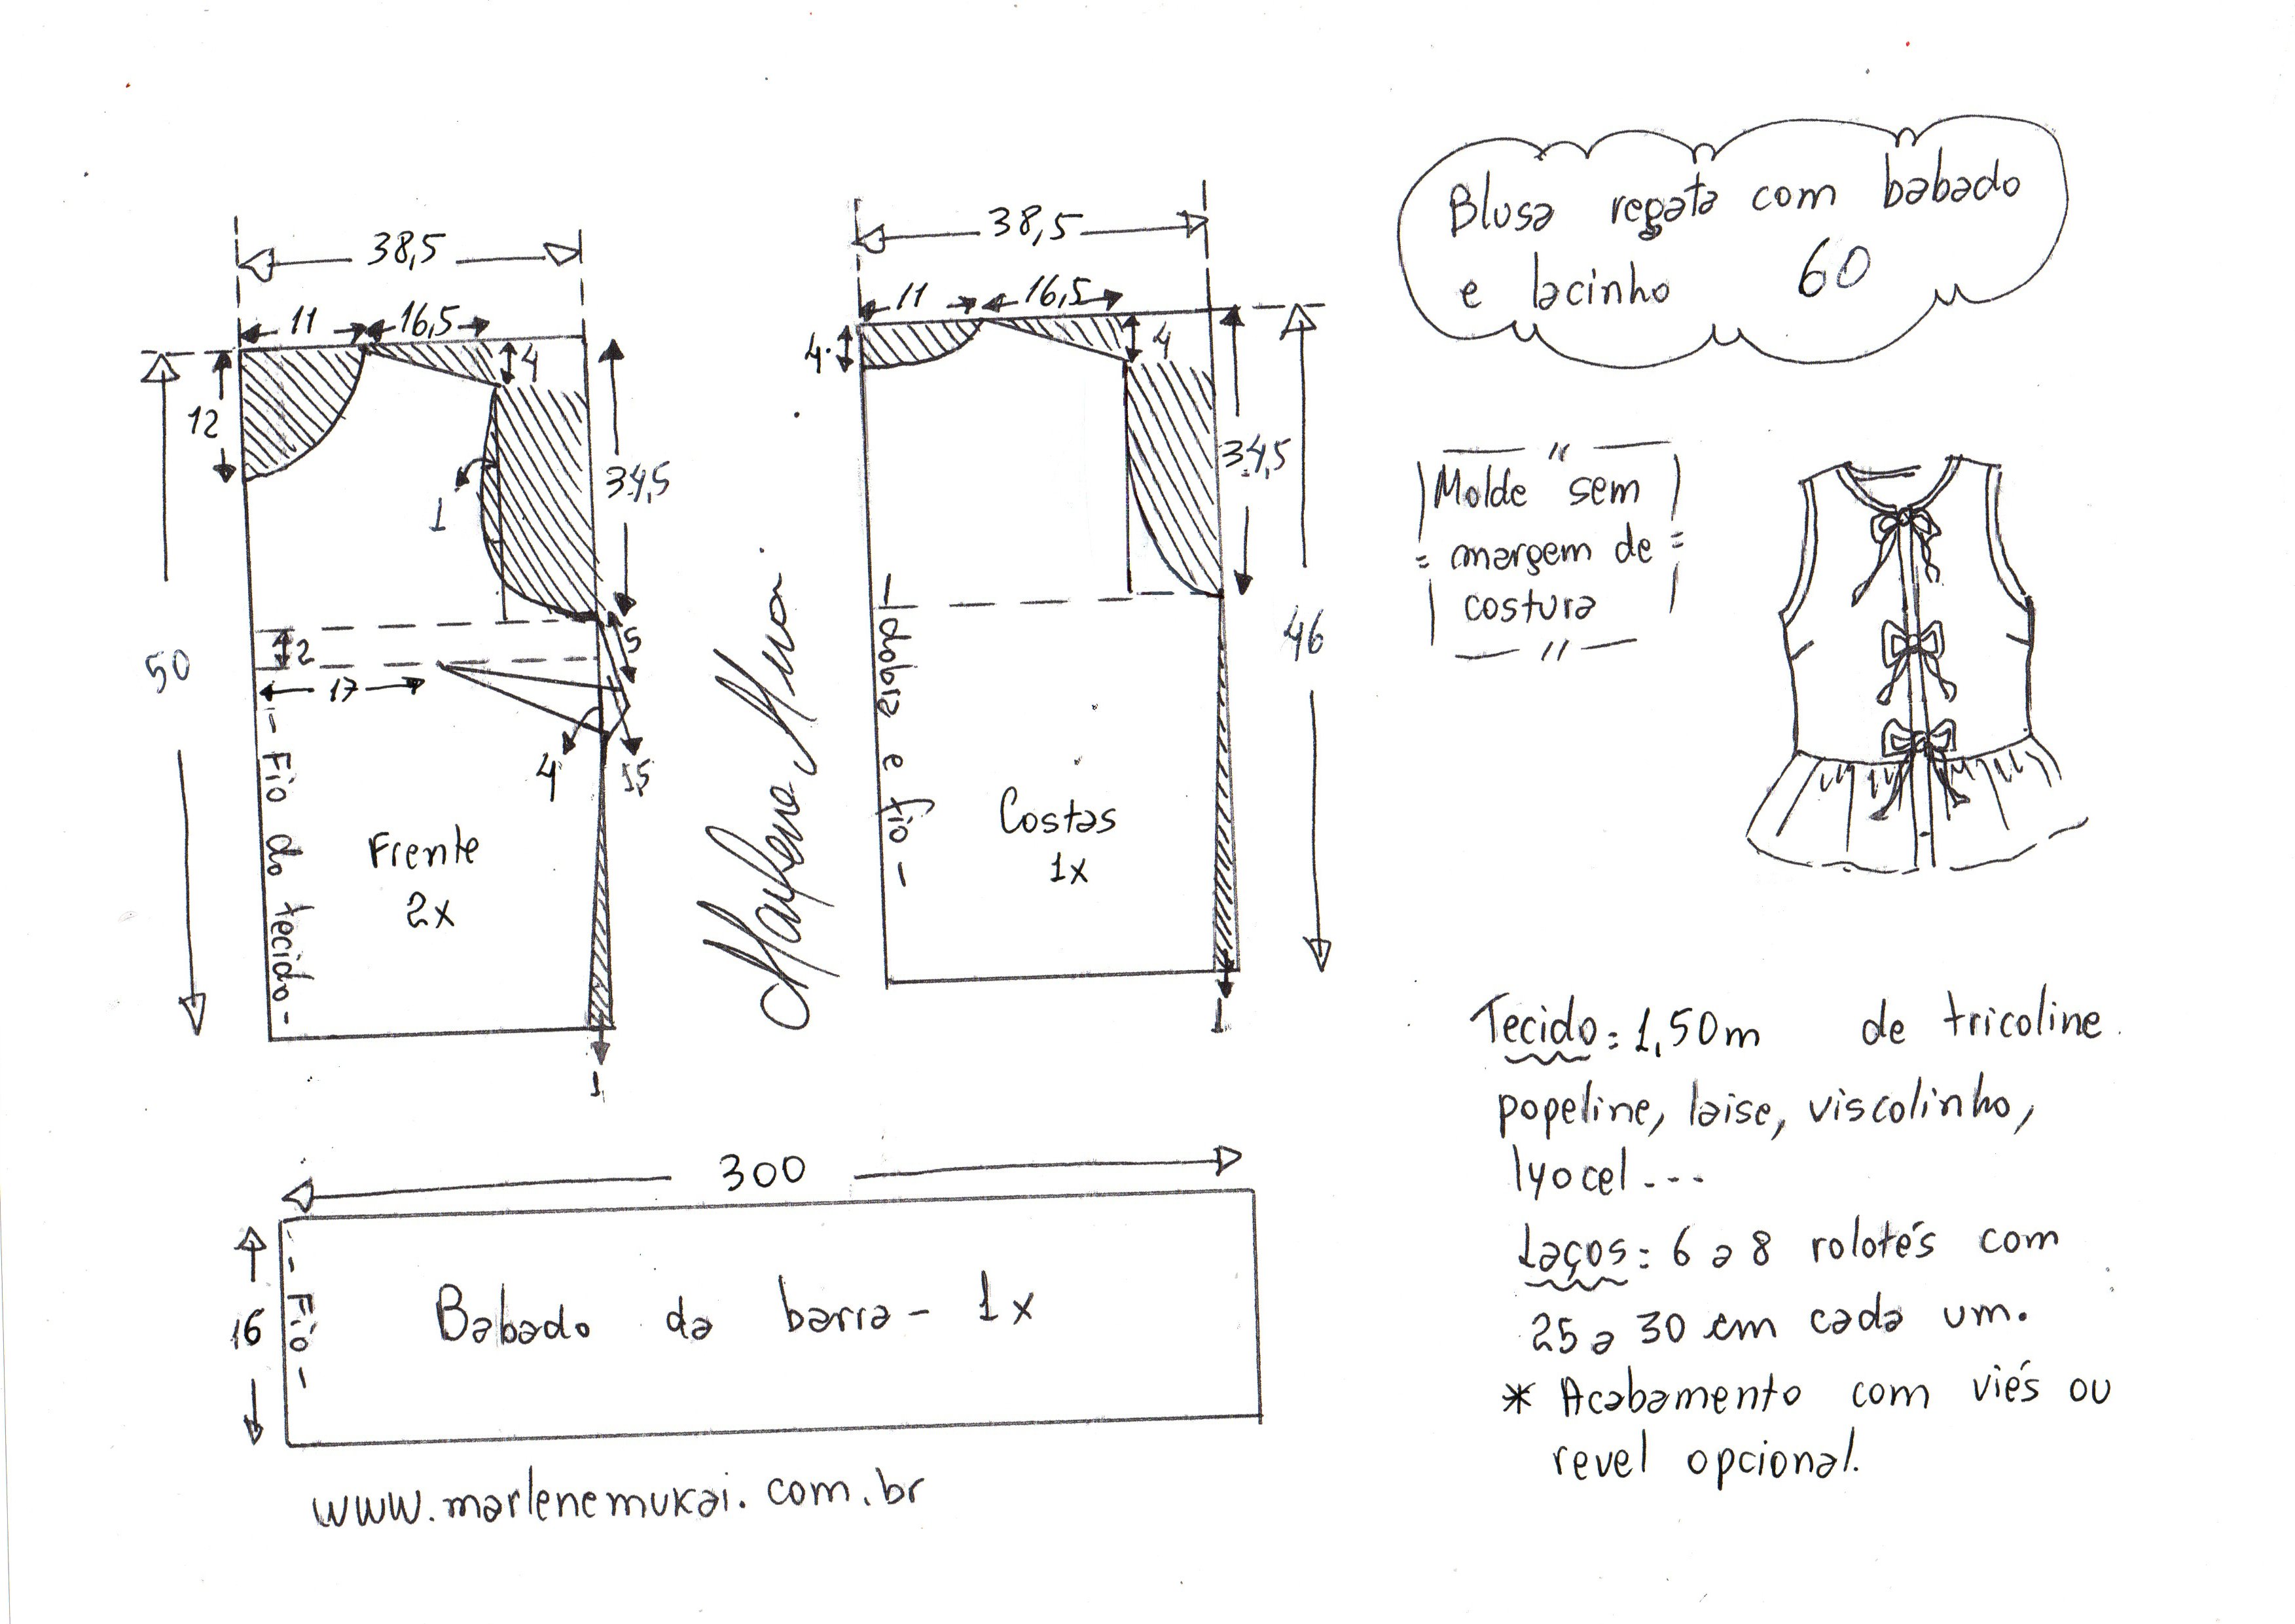 Blusa regata com babado
e lacinho 60
38,5
11
16,5
4
12
34,5
1
5
2
17
4
1,5
50
- Fio do tecido -
Frente
2x
1
Marlene Mukai
38,5
11
16,5
4
4
34,5
46
- dobra e fio -
Costas
1x
1
Molde sem
margem de
costura
300
16
- Fio -
Babado da barra - 1x
www.marlenemukai.com.br
Tecido: 1,50m de tricoline
popeline, laise, viscolinho,
lyocel ---
Laços: 6 a 8 rolotés com
25 a 30 cm cada um.
* Acabamento com viés ou
revel opcional.